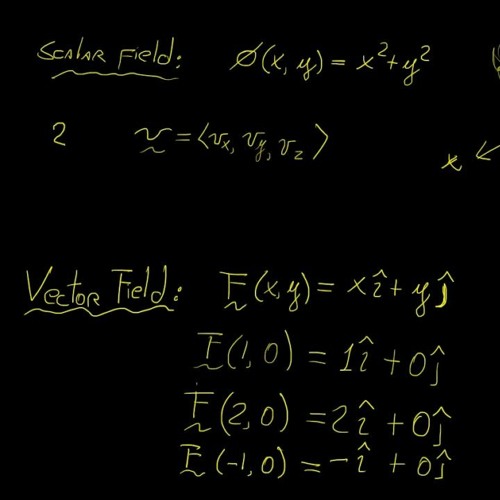 Scalar Field: ϕ(x, y) = x²+y²
2 v = ⟨vₓ, v_y, v_z⟩
x
Vector Field: F(x,y) = xî + yĵ
F(1,0) = 1î + 0ĵ
F(2,0) = 2î + 0ĵ
F(-1,0) = -î + 0ĵ